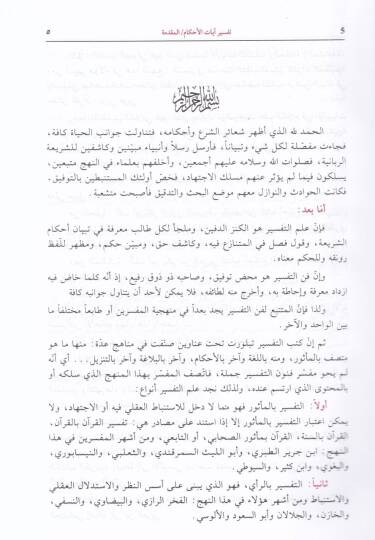 5 تفسير آيات الأحكام/ المقدمة ٥
بسم الله الرحمن الرحيم
الحمد لله الذي أظهر شعائر الشرع وأحكامه، فتناولت جوانب الحياة كافة،
فجاءت مفصّلة لكل شيء وتبياناً، فأرسل رسلاً وأنبياء مبيّنين وكاشفين للشريعة
الربانية، فصلوات الله وسلامه عليهم أجمعين، وأخلفهم بعلماء في النهج متبعين،
يسلكون فيما لم يؤثر عنهم مسلك الاجتهاد، فخصّ أولئك المستنبطين بالتوفيق،
فكانت الحوادث والنوازل معهم موضع البحث والتدقيق فأصبحت متشعبة.
أمّا بعد:
فإنّ علم التفسير هو الكنز الدفين، وملجأ لكل طالب معرفة في تبيان أحكام
الشريعة، وقول فصل في المتنازع فيه، وكاشف حق، ومبيّن حكم، ومظهر للّفظ
رونقه وللحكم معناه.
وإنّ فن التفسير هو محض توفيق، وصاحبه ذو ذوق رفيع، إذ أنّه كلما خاض فيه
ازداد معرفة وإحاطة به، وأخرج منه لطائفه، فلا يمكن لأحد أن يتناول جوانبه كافة
ولذا فإنّ المتتبع لفن التفسير يجد بعداً في منهجية المفسرين أو طابعاً مختلفاً ما
بين الواحد والآخر.
ثم إنّ كتب التفسير تبلورت تحت عناوين صنّفت في مناهج عدّة: منها ما هو
متصف بالمأثور، ومنه باللغة وآخر بالأحكام، وآخر بالبلاغة وآخر بالتنزيل... أي أنّه
لم يحو مفسر فنون التفسير جملة، فاتّصف المفسّر بهذا المنهج الذي سلكه أو
بالمحتوى الذي ارتسم عنده، ولذلك نجد علم التفسير أنواع:
أولاً: التفسير بالمأثور فهو مما لا دخل للاستنباط العقلي فيه أو الاجتهاد، ولا
يمكن اعتبار التفسير بالمأثور إلا إذا استند على مصادر هي: تفسير القرآن بالقرآن،
القرآن بالسنة، القرآن بمأثور الصحابي، أو التابعي، ومن أشهر المفسرين في هذا
النهج: ابن جرير الطبري، وأبو الليث السمرقندي، والثعلبي، والنيسابوري،
والبغوي، وابن كثير، والسيوطي.
ثانياً: التفسير بالرأي، فهو الذي يبنى على أسس النظر والاستدلال العقلي
والاستنباط ومن أشهر هؤلاء في هذا النهج: الفخر الرازي، والبيضاوي، والنسفي،
والخازن، والجلالان وأبو السعود والآلوسي.